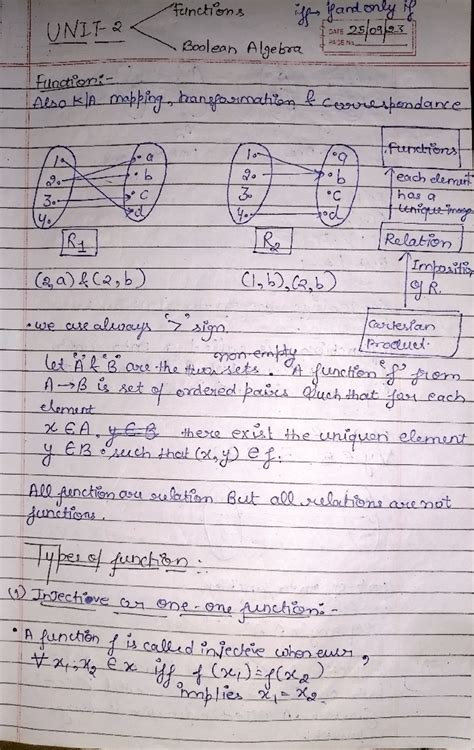 Functions
iff → if and only if
UNIT-2
DATE 25/09/23
PAGE No.
Boolean Algebra
Function:-
Also K/A mapping, transformation & correspondance
1. a
2. b
3. c
4. d
R1
(2,a) & (2,b)
1. a
2. b
3. c
4. d
R2
(1,b), (2,b)
Functions
each element
has a
unique image
Relation
Imposition
of R.
Cartesian
Product.
• we use always "→" sign.
non-empty
let "A" & "B" are the two sets. A function "f" from
A→B is set of ordered pairs such that for each
element
x∈A, y∈B there exist the unique element
y∈B such that (x,y) ∈ f.
All function are relation But all relations are not
functions.
Types of function:
(1) Injective or one-one function:-
• A function f is called injective whenever,
∀ x1, x2 ∈ x iff f(x1) = f(x2)
implies x1 = x2.